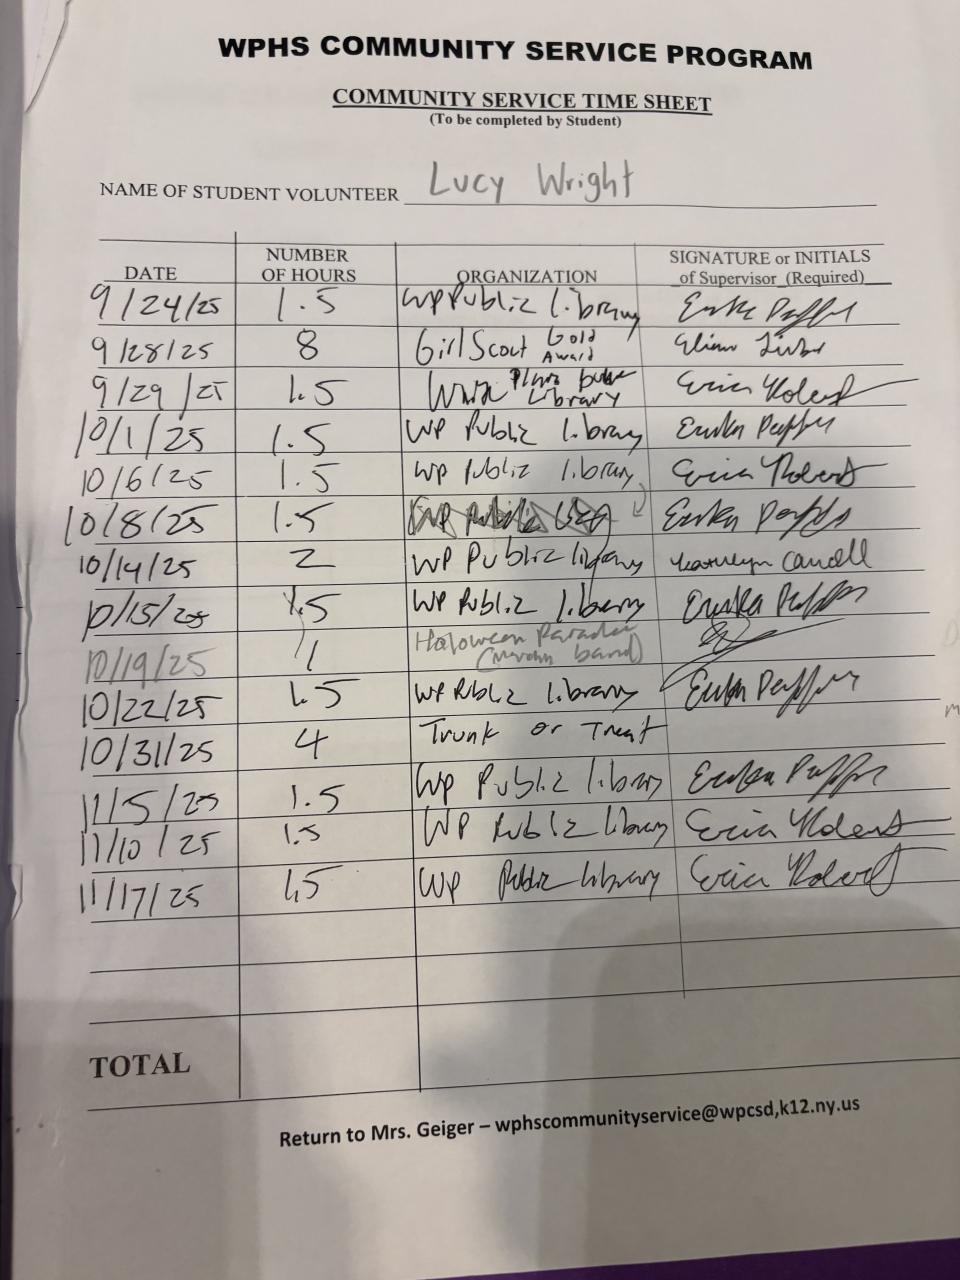 WPHS COMMUNITY SERVICE PROGRAM
COMMUNITY SERVICE TIME SHEET
(To be completed by Student)
NAME OF STUDENT VOLUNTEER Lucy Wright
DATE NUMBER OF HOURS ORGANIZATION SIGNATURE or INITIALS of Supervisor (Required)
9/24/25 1.5 WP Public Library Erika
9/28/25 8 Girl Scout Gold Award
9/29/25 1.5 Library Erica Robert
10/1/25 1.5 WP Public Library Erika
10/6/25 1.5 WP Public library Erica Robert
10/8/25 1.5 Erika
10/14/25 2 WP Public library
10/15/25 1.5 WP Public library Erika
10/19/25 1 Haloween Parade band)
10/22/25 1.5 WP Public library Erika
10/31/25 4 Trunk or Treat
11/5/25 1.5 WP Public library Erika
11/10/25 1.5 WP Public Library Erica Robert
11/17/25 1.5 WP Public Library Erica Robert
TOTAL
Return to Mrs. Geiger – wphscommunityservice@wpcsd,k12.ny.us